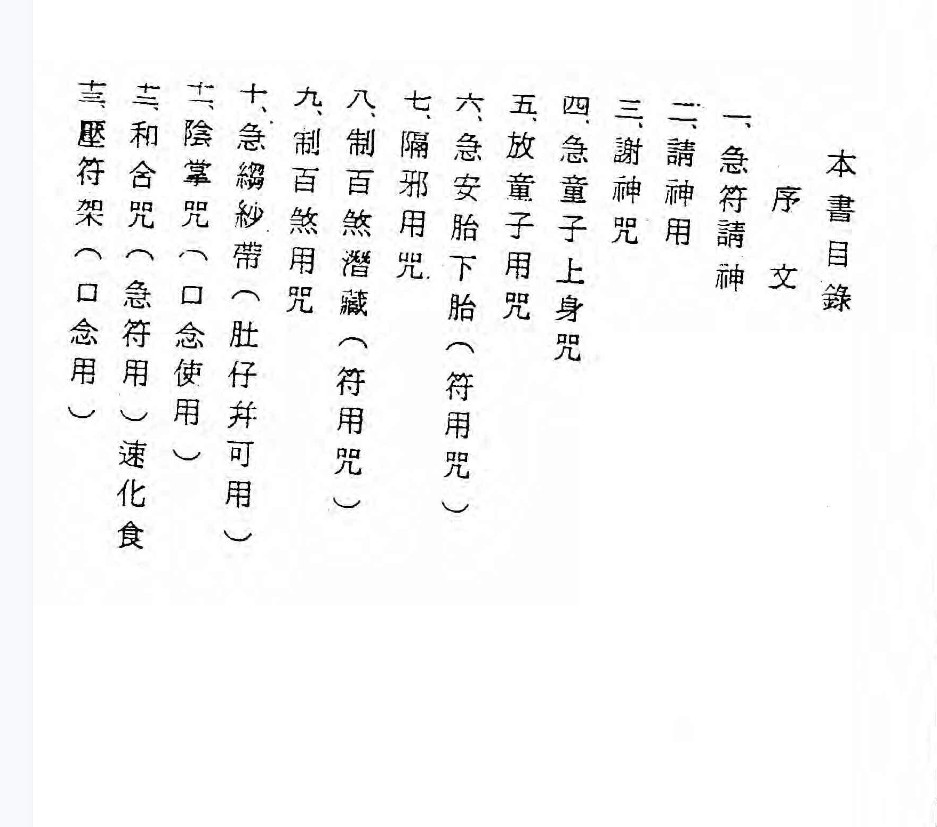 本書目錄
序文
一、急符請神
二、請神用
三、謝神咒
四、急童子上身咒
五、放童子用咒
六、急安胎下胎(符用咒)
七、隔邪用咒.
八、制百煞潛藏(符用咒)
九、制百煞用咒
十、急縐紗帶(肚仔并可用)
十一、陰掌咒(口念使用)
十二、和合咒(急符用)速化食
十三、壓符架(口念用)